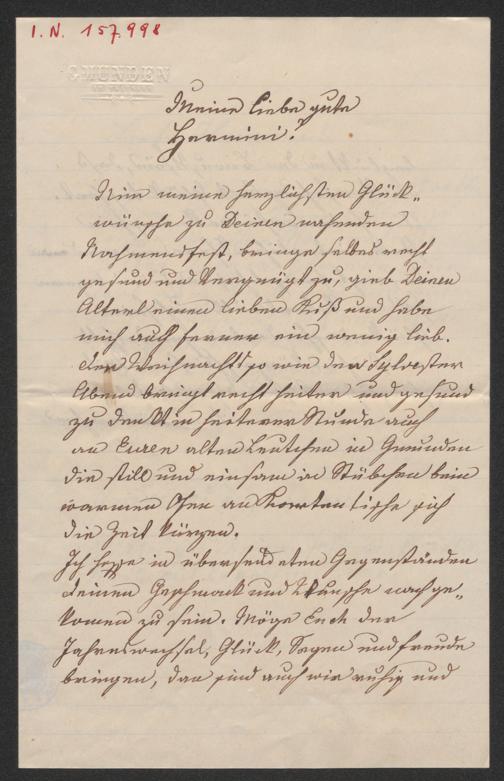 I. N. 157.998
GMUNDEN
Meine liebe gute
Hermini!
Nim meine herzlichsten Glück-
wünsche zu Deinen nahenden
Nahmensfest, bringe selbes recht
gesund und Vergnügt zu, gieb Deinen
Alterl einen lieben Kuß und habe
mich auch ferner ein wenig lieb.
den Weihnachts so wie den Sylvester
Abend bringt recht heiter und gesund
zu denkt in heiterer Stunde auch
an Euren alten Leutchen in Gmunden
die still und einsam in Stübchen beim
warmen Ofen an Karten tische sich
die Zeit kürzen.
Ich hoffe in übersendeten Gegenständen
Deinen Geschmack und Wunsche nachge-
komen zu sein. Möge Euch der
Jahreswechsel, Glück, Segen und freude
bringen, dan sind auch wir ruhig und